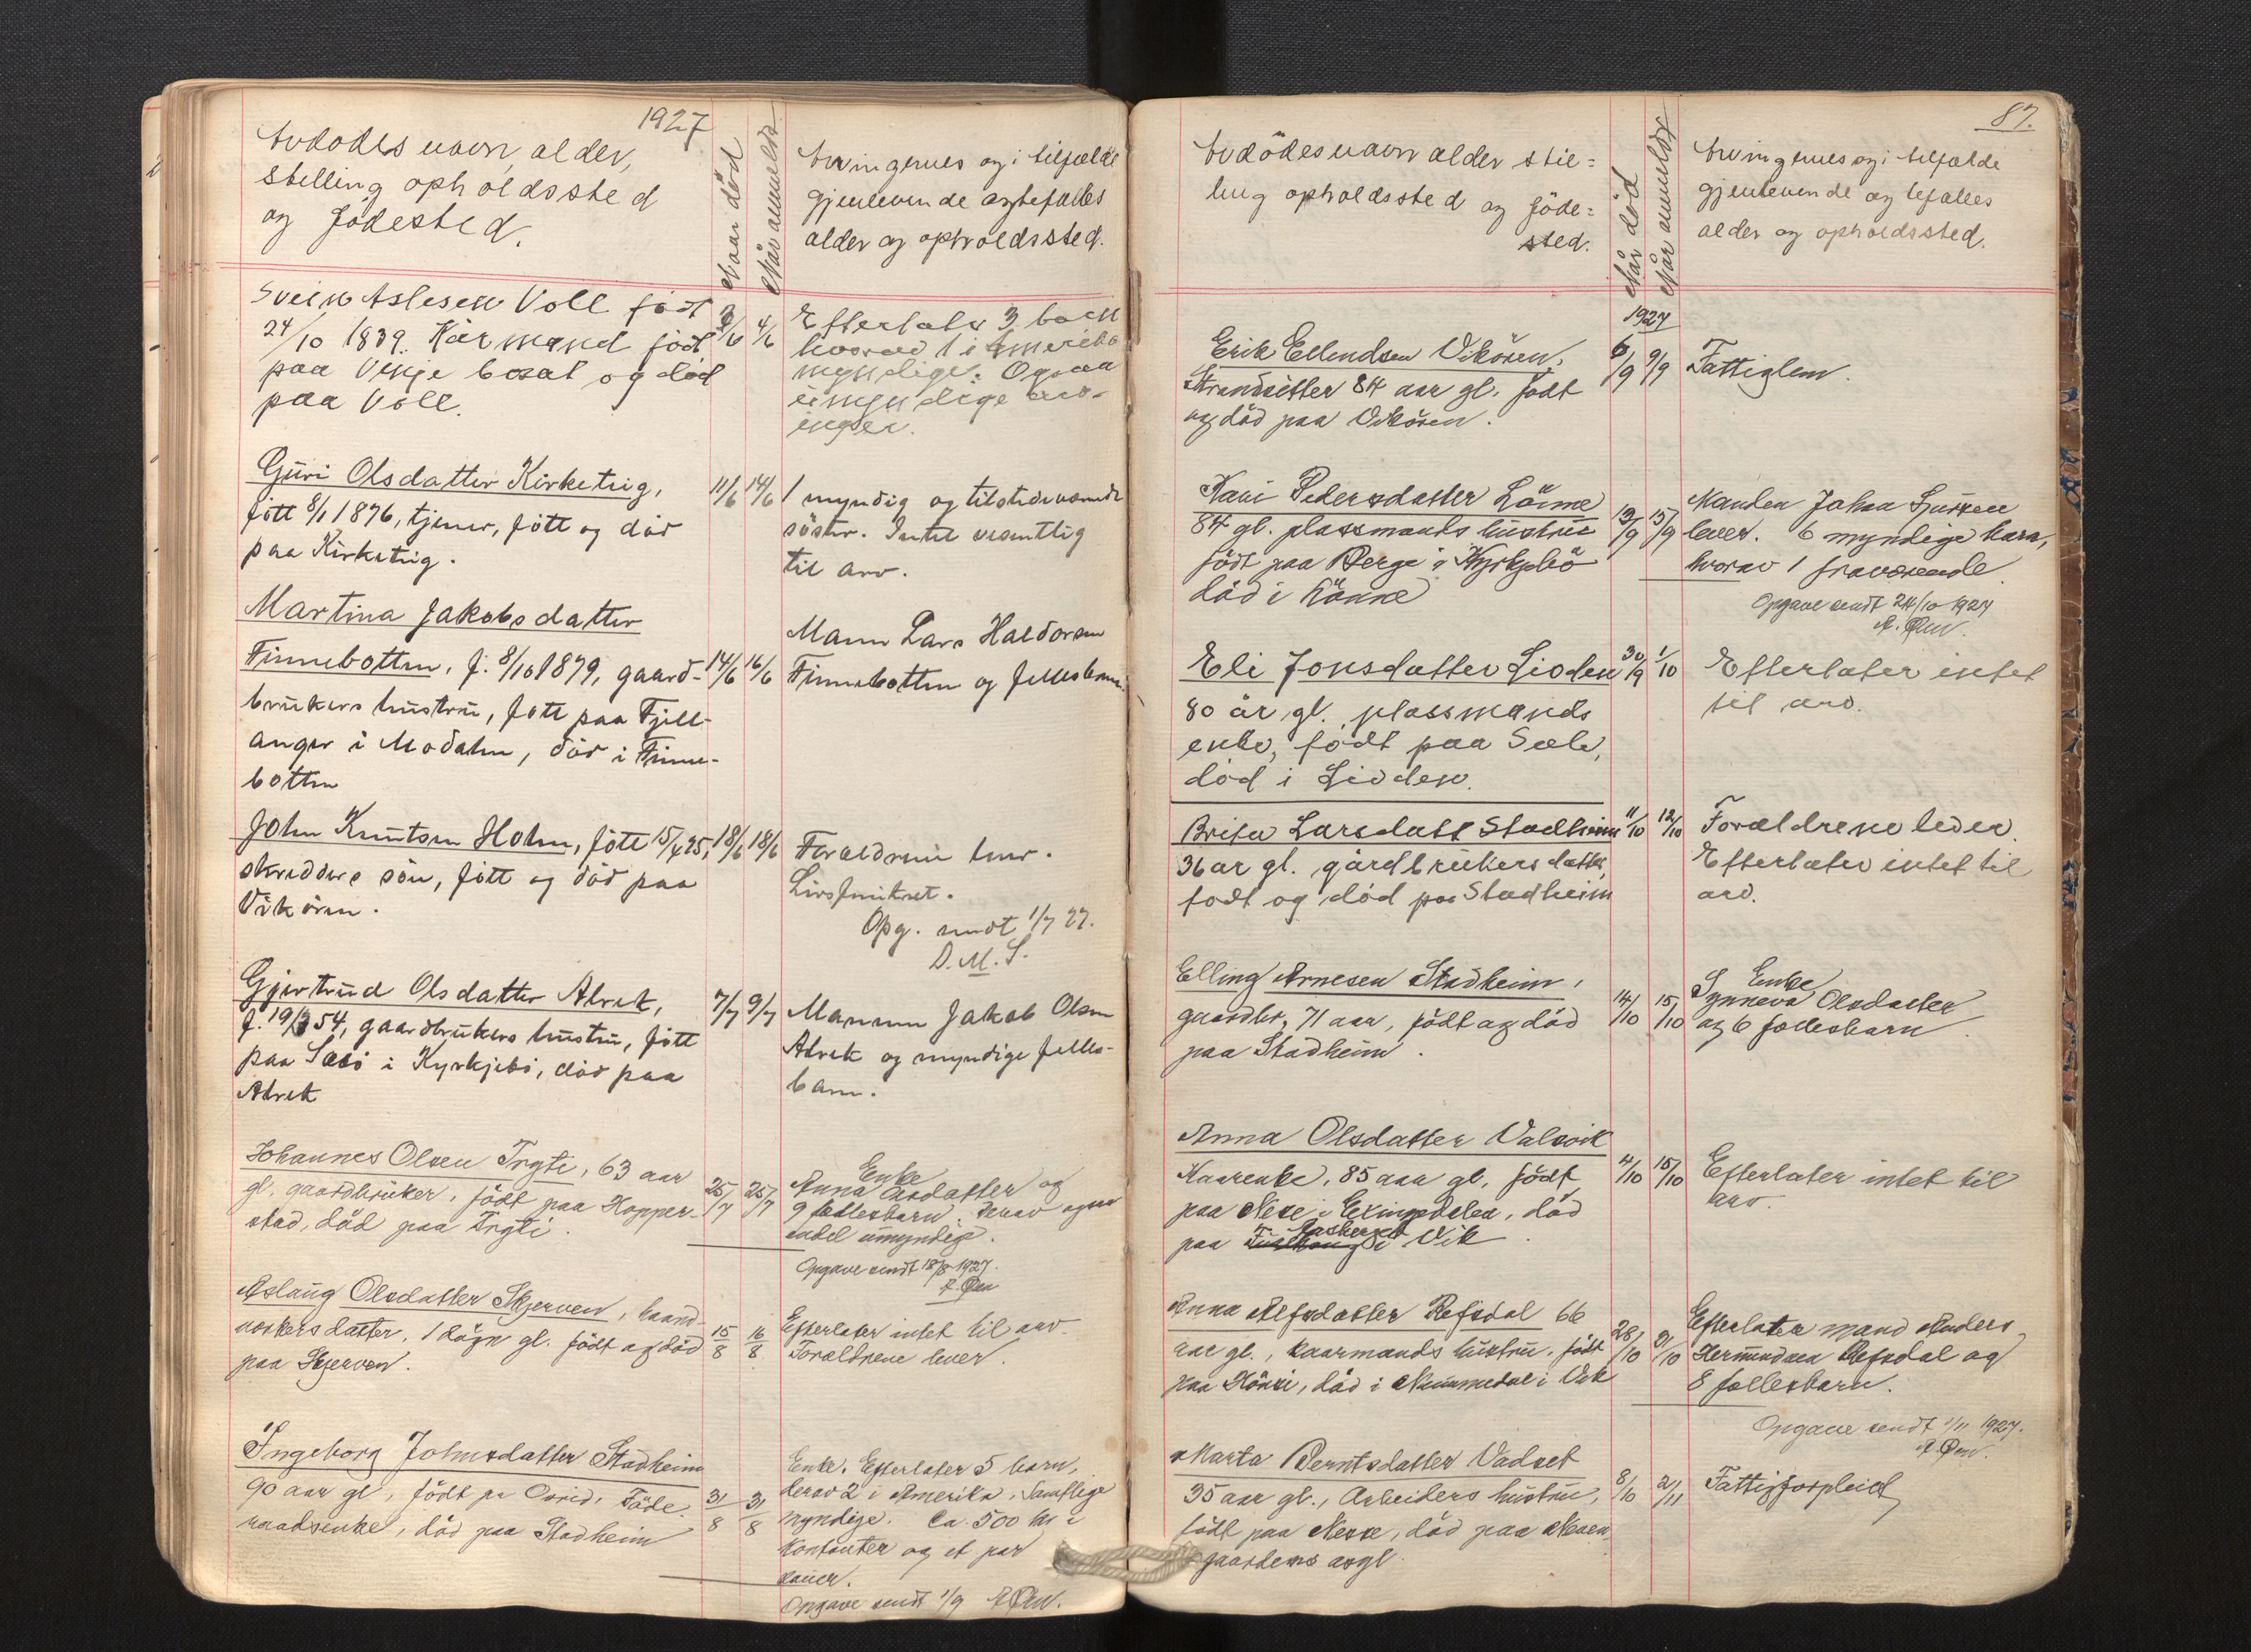 1927
Avdødes navn, alder,
stilling opholdssted
og fødested.
Naar död
Når anmeldt
Arvingernes og i tilfælde
gjenlevende ægtefælles
alder og opholdssted.
Svein Aslesen Voll født
24/10 1839. Kårmand född
paa Vinje bosat og död
paa Voll.
2/6 4/6
Efterlater 3 barn
hvorav 1 i Amerika
myndige. Ogsaa
umyndige arv-
inger.
Guri Olsdatter Kirketeig,
født 8/1 1876, tjener, født og död
paa Kirketeig.
11/6 14/6
1 myndig og tilstedeværende
söster. Intet vesentlig
til arv.
Martina Jakobsdatter
Finnebotten, f. 8/10 1879, gaard-
brukers hustru, født paa Fjell-
anger i Modalen, död i Finne-
botten
14/6 16/6
Mann Lars Haldorsen
Finnebotten og fellesbarn.
John Knutsen Holm, født 15/4 25,
skredders sön, født og död paa
Vikören.
18/6 18/6
Foreldrene lever.
Livsforsikret.
Opg. sendt 1/7 27.
D.M.S.
Gjertrud Olsdatter Alrek,
f. 19/3 54, gaardbrukers hustru, født
paa Sæbö i Kyrkjebö, död paa
Alrek
7/7 9/7
Mannen Jakob Olsen
Alrek og myndige felles-
barn.
Johannes Olsen Tryti, 63 aar
gl. gaardbruker, födt paa Hopper-
stad, död paa Tryti.
25/7 25/7
Enke
Anna Olsdatter og
9 fællesbarn. Derav ogsaa
endel umyndige.
Opgave sendt 18/8 1927.
A. Øen
Aslaug Olsdatter Skjerven, haand-
verkers datter. 1 dögn gl. födt og död
paa Skjerven.
15/8 16/8
Efterlater intet til arv.
Forældrene lever.
Ingeborg Johnsdatter Stadheim
90 aar gl, födt paa Föde-
raadsenke, död paa Stadheim
31/8 31/8
Enke. Efterlater 5 barn,
derav 2 i Amerika. Samtlige
myndige. Ca. 500 kr i
kontanter og et par
sauer.
Opgave sendt 1/9 A Øen.
87.
Avdödes navn alder stil-
ling opholdssted og föde-
sted.
Når död
Når anmeldt
Arvingernes og i tilfælde
gjenlevende ægtefælles
alder og opholdssted.
1927
Erik Ellendsen Vikören,
Strandsitter 84 aar gl. födt
og död paa Vikören.
6/9 9/9
Fattiglem.
Kari Pedersdatter Lönne
84 gl. plassmands hustru
födt paa Berge i Kyrkjebö
död i Lönne
13/9 15/9
Manden Johan Sjursen
lever. 6 myndige barn,
hvorav 1 fraværende.
Opgave sendt 24/10 1927
A. Øen.
Eli Jonsdatter Lioden
80 år gl. plassmands
enke, födt paa Sæle,
död i Lioden.
30/9 1/10
Efterlater intet
til arv.
Brita Larsdatt Stadheim
36 ar gl. gårdbrukers datter,
fodt og död paa Stadheim
11/10 12/10
Forældrene lever.
Efterlater intet til
arv.
Elling Arnesen Stadheim,
gaardbr, 71 aar, födt og död
paa Stadheim.
14/10 15/10
Enke
Synneva Olsdatter
og 6 fællesbarn.
Anna Olsdatter Valsvik
Kaarenke, 85 aar gl, födt
paa Nese i Exingedalen, död
paa i Vik.
4/10 15/10
Efterlater intet til
arv.
Anna Refsdatter Refsdal 66
aar gl., kaarmands hustru, födt
paa Hönsi, död i Nummedal i Vik
28/10 31/10
Efterlater mand Anders
Hermundsen Refsdal og
8 fællesbarn.
Opgave sendt 1/11 1927.
A. Øen.
Marta Berntsdatter Vadset
35 aar gl., Arbeiders hustru,
födt paa Nesse, död paa
gaardens
8/10 2/11
Fattigforpleid